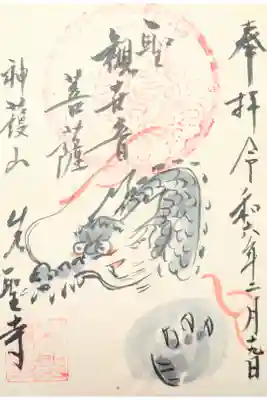 奉拝 令和六年二月十九日
聖
観世音
菩薩
神護山
岩聖寺